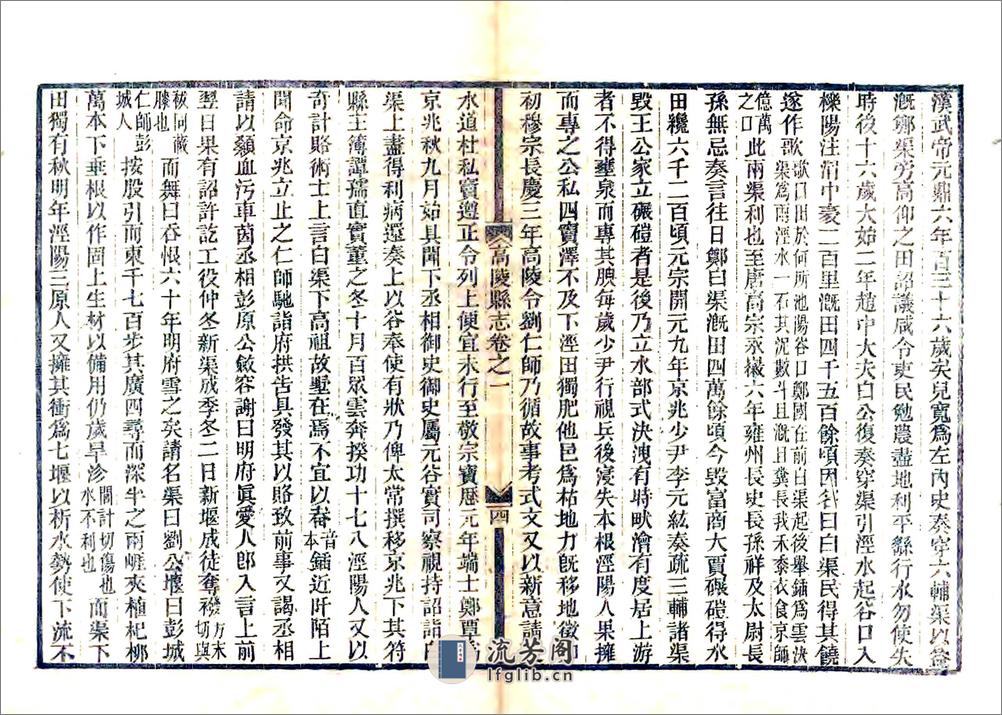 漢武帝元鼎六年百三十六歲矣兒寬為左內史奏穿六輔渠以益
漑鄭渠旁高仰之田詔議咸令吏民勉農盡地利平繇行水勿使失
時後十六歲太始二年趙中大夫白公復奏穿渠引涇水起谷口入
櫟陽注渭中袤二百里漑田四千五百餘頃因名曰白渠民得其饒
遂作歌歌曰田於何所池陽谷口鄭國在前白渠起後舉鍤為雲決渠為雨涇水一石其泥數斗且漑且糞長我禾黍衣食京師
億萬之口此兩渠利也至唐高宗永徽六年雍州長史長孫祥及太尉長
孫無忌奏言往日鄭白渠漑田四萬餘頃今毀富商大賈碾磑得水
田纔六千二百頃元宗開元九年京兆少尹李元紘奏疏三輔諸渠
毀王公家立碾磑者是後乃立水部式決洩有時畎澮有度居上游
者不得壅泉而專其腴每歲少尹行視兵後寖失本根涇陽人果擁
而專之公私四竇澤不及下涇田獨肥他邑為枯地力既移地徵如
初穆宗長慶三年高陵令劉仁師乃循故事考式文又以新意請
高陵縣志卷之一
四
水道杜私竇遵正令列上便宜未行至敬宗寶歷元年端士鄭覃為
京兆秋九月始具聞下丞相御史御史屬元谷實司察視持詔詣白
渠上盡得利病還奏上以谷奉使有狀乃俾太常撰移京兆下其符
縣主簿譚孺直實董之冬十月百眾雲奔揆功十七八涇陽人又以
奇計賂術士上言白渠下高祖故墅在焉不宜以畚音本鍤近阡陌上
聞命京兆立止之仁師馳詣府控告具發其以賂致前事又謁丞相
請以顙血污車茵丞相彭原公斂容謝曰明府眞愛人郎入言上前
翌日果有詔許訖工役仲冬新渠成季冬二日新堰成徒奪襏方末切與
袚同蔽膝也而舞曰吞恨六十年明府雪之矣請名渠曰劉公堰曰彭城
仁師彭城人按股引而東千七百步其廣四尋而深半之兩涯夾植杞柳
萬本下垂根以作固上生材以備用仍歲旱沴閭計切傷也水不利也而渠下
田獨有秋明年涇陽三原人又擁其衝為七堰以折水勢使下流不
流芳阁
lfglib.cn